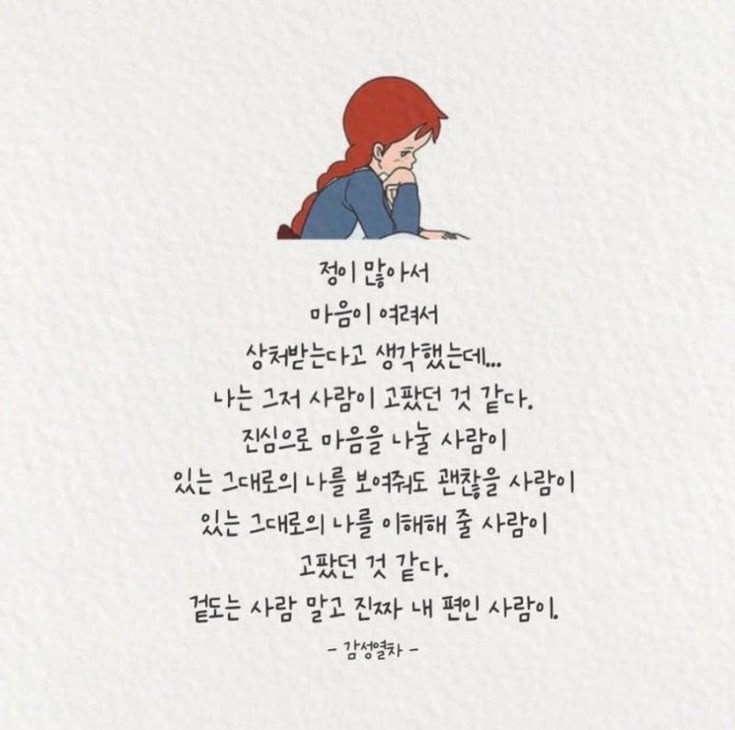 정이 많아서
마음이 여려서
상처받는다고 생각했는데...
나는 그저 사람이 고팠던 것 같다.
진심으로 마음을 나눌 사람이
있는 그대로의 나를 보여줘도 괜찮을 사람이
있는 그대로의 나를 이해해 줄 사람이
고팠던 것 같다.
겉도는 사람 말고 진짜 내 편인 사람이.
- 감성열차 -